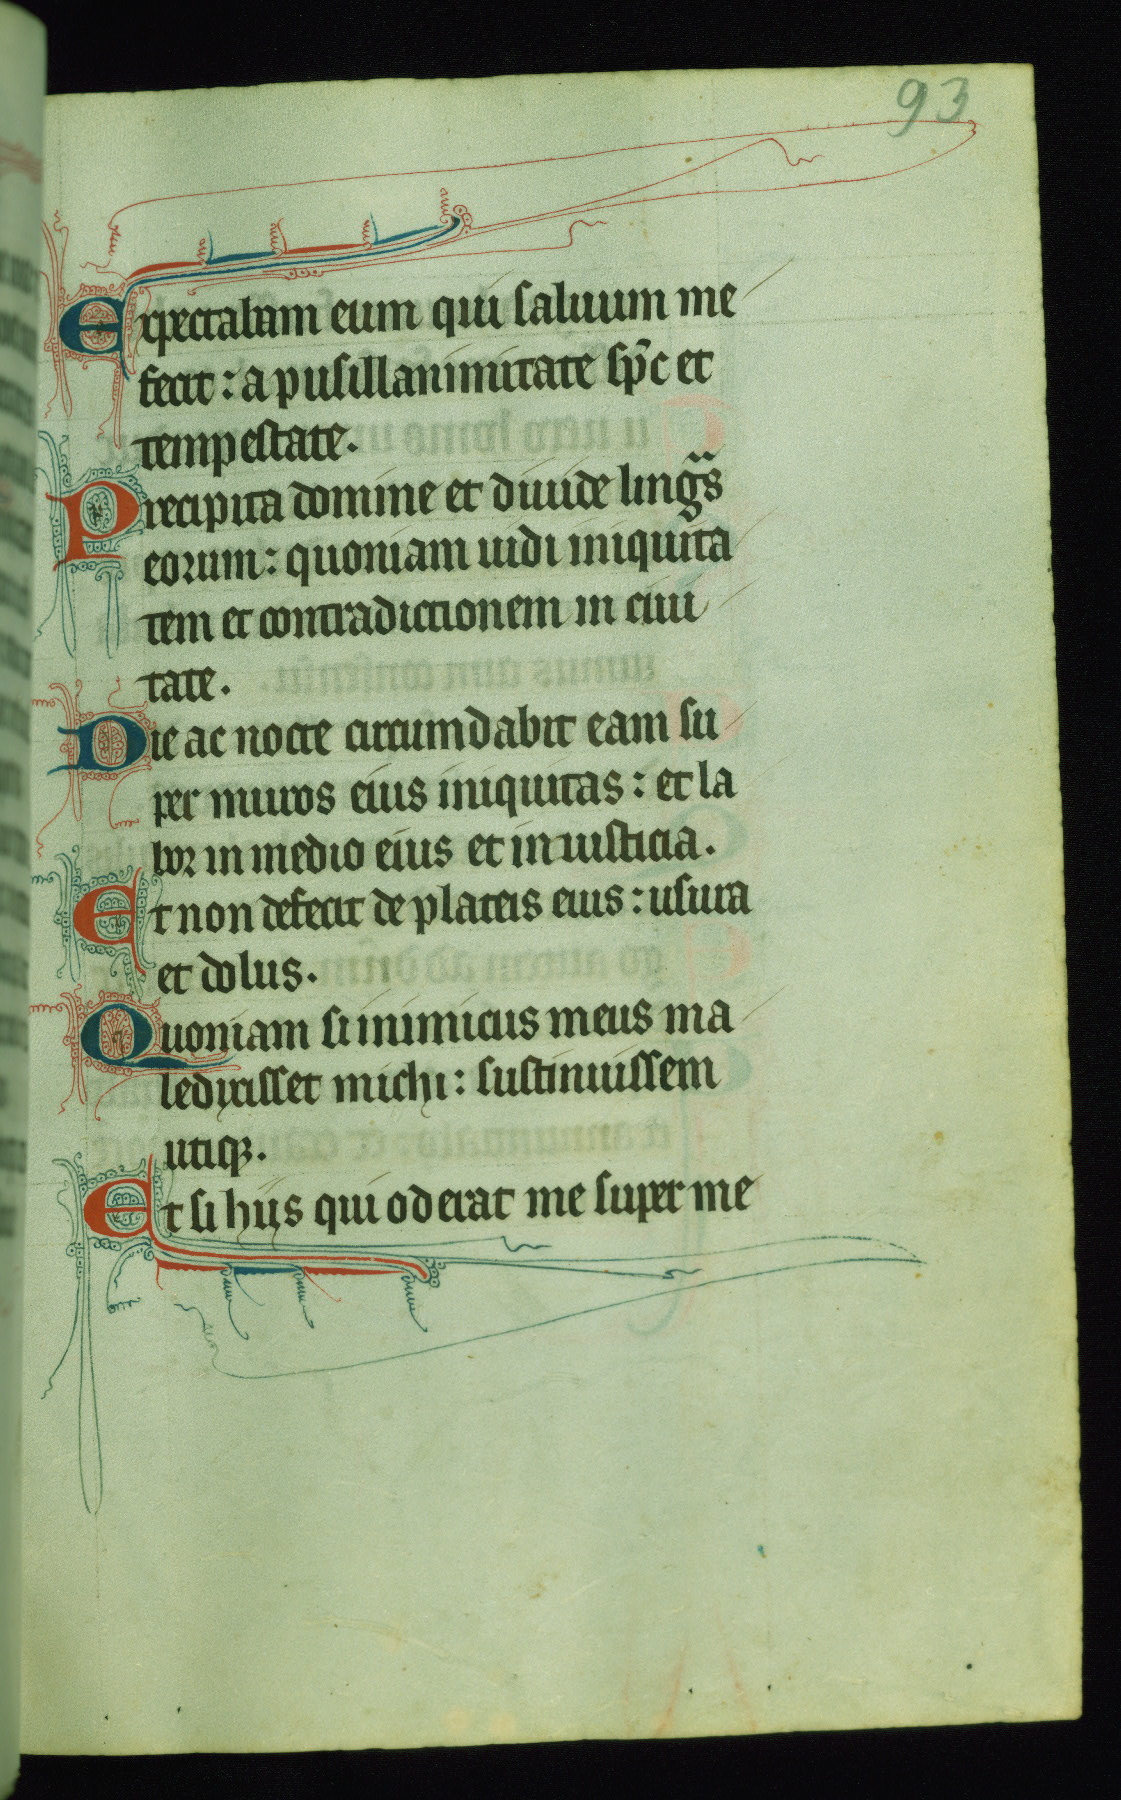 93
Expectabam eum qui saluum me
fecit : a pusillanimitate sp̄c et
tempestate.
Precipita domine et diuide lingᵃs
eorum : quoniam uidi iniquita
tem et contradictionem in ciui
tate.
Die ac nocte circumdabit eam su
per muros eius iniquitas : et la
bor in medio eius et iniusticia.
Et non defecit de plateis eius : usura
et dolus.
Quoniam si inimicus meus ma
ledixisset michi : sustinuissem
utiqꝫ.
Et si hijs qui oderat me super me